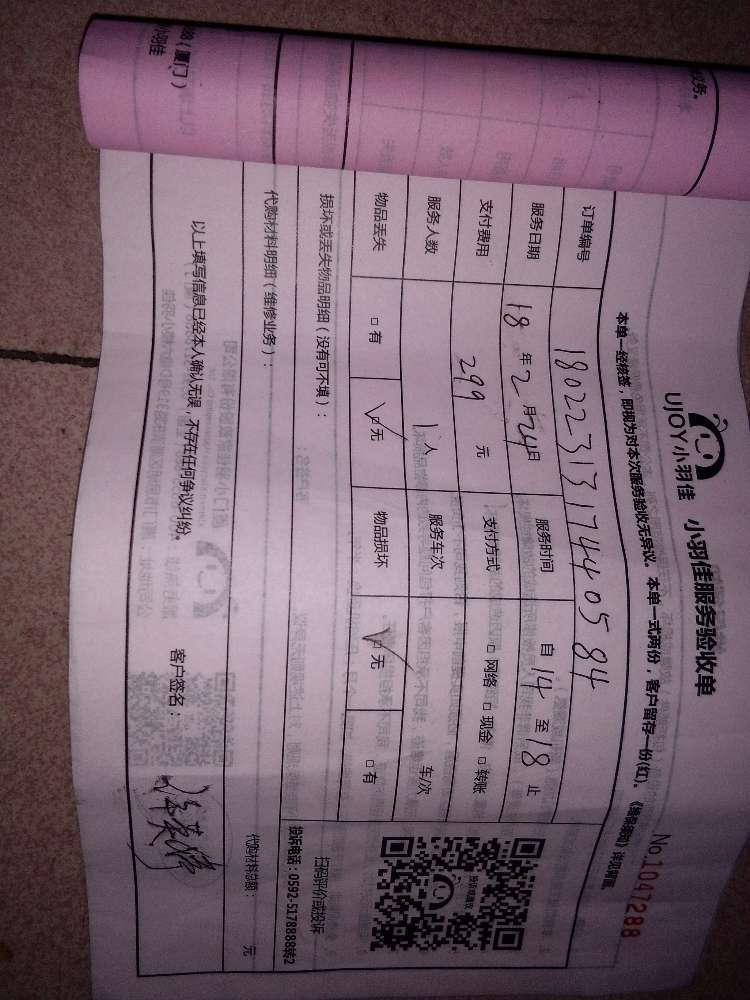 UJOY小羽佳 小羽佳服务验收单
No.1047288
本单一经核签，即视为对本次服务验收无异议。本单一式两份，客户留存一份(红)。
订单编号 180223131744 0584
服务日期 18年2月24日 服务时间 自14至18止
支付费用 299元 支付方式 □网络 □现金 □转账
服务人数 1人 服务车次 车/次
物品丢失 □有 ☑无 物品损坏 ☑无 □有
损坏或丢失物品明细（没有可不填）：
扫码评价或投诉
投诉电话：0592-5178888转2
代购材料明细（维修业务）：
代购材料总额： 元
以上填写信息已经本人确认无误，不存在任何争议纠纷。 客户签名：